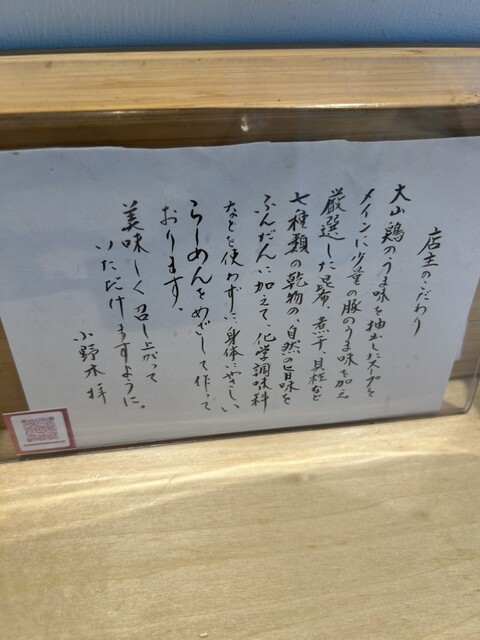 店主のこだわり
大山鶏のうま味を抽出したスープを
メインに少量の豚のうま味を加え
厳選した昆布、煮干、貝柱など
七種類の乾物の、自然の旨味を
ふんだんに加えて、化学調味料
などを使わずに、身体にやさしい
らーめんをめざして作って
おります。
美味しく召し上がって
いただけますように。
小野木 拝